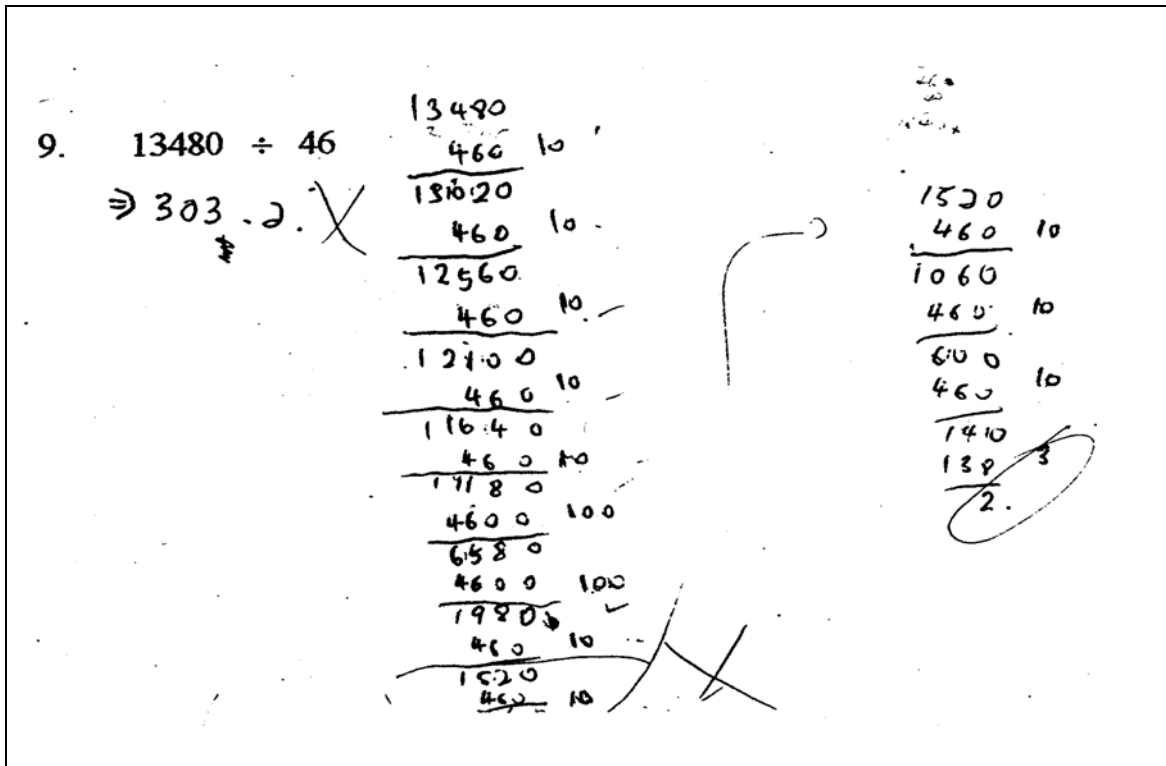 9. 13480 ÷ 46
⇒ 303.2.
13480
460 10
13020
460 10
12560
460 10
12100
460 10
11640
460 10
11180
4600 100
6580
4600 100
1980
460 10
1520
460 10
1520
460 10
1060
460 10
600
460 10
140
138 3
2.